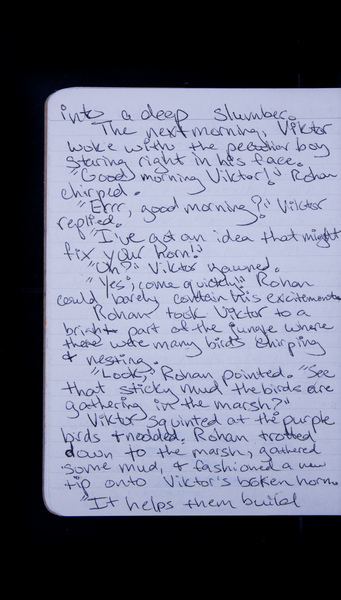 into a deep slumber.
The next morning, Viktor
woke with the peculiar boy
staring right in his face.
"Good morning Viktor!" Rohan
chirped.
"Errr, good morning?" Viktor
replied.
"I've got an idea that might
fix your horn!"
"Oh?" Viktor yawned.
"Yes, come quickly!" Rohan
could barely contain his excitement.
Rohan took Viktor to a
bright part of the jungle where
there were many birds chirping
& nesting.
"Look," Rohan pointed. "See
that sticky mud the birds are
gathering in the marsh?"
Viktor squinted at the purple
birds & nodded. Rohan trotted
down to the marsh, gathered
some mud, & fashioned a new
tip onto Viktor's broken horn.
"It helps them build